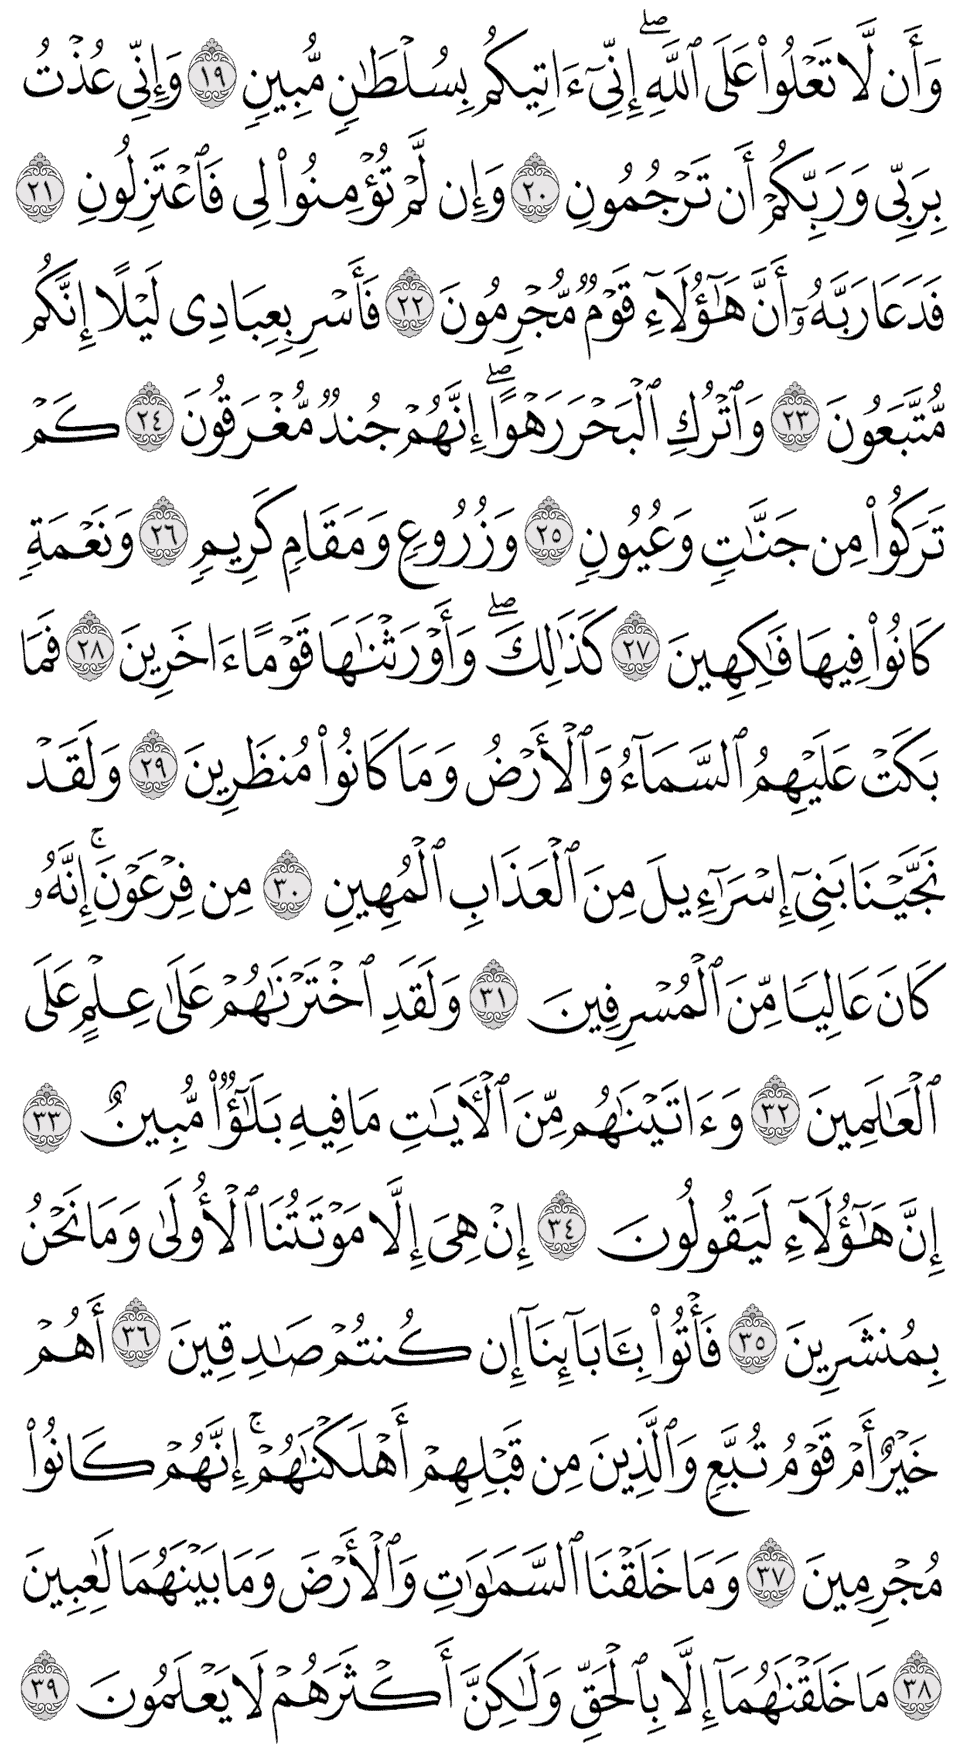 وَأَن لَّا تَعْلُوا۟ عَلَى ٱللَّهِ ۖ إِنِّىٓ ءَاتِيكُم بِسُلْطَـٰنٍ مُّبِينٍ ١٩ وَإِنِّى عُذْتُ
بِرَبِّى وَرَبِّكُمْ أَن تَرْجُمُونِ ٢٠ وَإِن لَّمْ تُؤْمِنُوا۟ لِى فَٱعْتَزِلُونِ ٢١
فَدَعَا رَبَّهُۥٓ أَنَّ هَـٰٓؤُلَآءِ قَوْمٌ مُّجْرِمُونَ ٢٢ فَأَسْرِ بِعِبَادِى لَيْلًا إِنَّكُم
مُّتَّبَعُونَ ٢٣ وَٱتْرُكِ ٱلْبَحْرَ رَهْوًا ۖ إِنَّهُمْ جُندٌ مُّغْرَقُونَ ٢٤ كَمْ
تَرَكُوا۟ مِن جَنَّـٰتٍ وَعُيُونٍ ٢٥ وَزُرُوعٍ وَمَقَامٍ كَرِيمٍ ٢٦ وَنَعْمَةٍ
كَانُوا۟ فِيهَا فَـٰكِهِينَ ٢٧ كَذَٰلِكَ ۖ وَأَوْرَثْنَـٰهَا قَوْمًا ءَاخَرِينَ ٢٨ فَمَا
بَكَتْ عَلَيْهِمُ ٱلسَّمَآءُ وَٱلْأَرْضُ وَمَا كَانُوا۟ مُنظَرِينَ ٢٩ وَلَقَدْ
نَجَّيْنَا بَنِىٓ إِسْرَٰٓءِيلَ مِنَ ٱلْعَذَابِ ٱلْمُهِينِ ٣٠ مِن فِرْعَوْنَ ۚ إِنَّهُۥ
كَانَ عَالِيًا مِّنَ ٱلْمُسْرِفِينَ ٣١ وَلَقَدِ ٱخْتَرْنَـٰهُمْ عَلَىٰ عِلْمٍ عَلَى
ٱلْعَـٰلَمِينَ ٣٢ وَءَاتَيْنَـٰهُم مِّنَ ٱلْـَٔايَـٰتِ مَا فِيهِ بَلَـٰٓؤٌا۟ مُّبِينٌ ٣٣
إِنَّ هَـٰٓؤُلَآءِ لَيَقُولُونَ ٣٤ إِنْ هِىَ إِلَّا مَوْتَتُنَا ٱلْأُولَىٰ وَمَا نَحْنُ
بِمُنشَرِينَ ٣٥ فَأْتُوا۟ بِـَٔابَآئِنَآ إِن كُنتُمْ صَـٰدِقِينَ ٣٦ أَهُمْ
خَيْرٌ أَمْ قَوْمُ تُبَّعٍ وَٱلَّذِينَ مِن قَبْلِهِمْ أَهْلَكْنَـٰهُمْ ۚ إِنَّهُمْ كَانُوا۟
مُجْرِمِينَ ٣٧ وَمَا خَلَقْنَا ٱلسَّمَـٰوَٰتِ وَٱلْأَرْضَ وَمَا بَيْنَهُمَا لَـٰعِبِينَ
٣٨ مَا خَلَقْنَـٰهُمَآ إِلَّا بِٱلْحَقِّ وَلَـٰكِنَّ أَكْثَرَهُمْ لَا يَعْلَمُونَ ٣٩